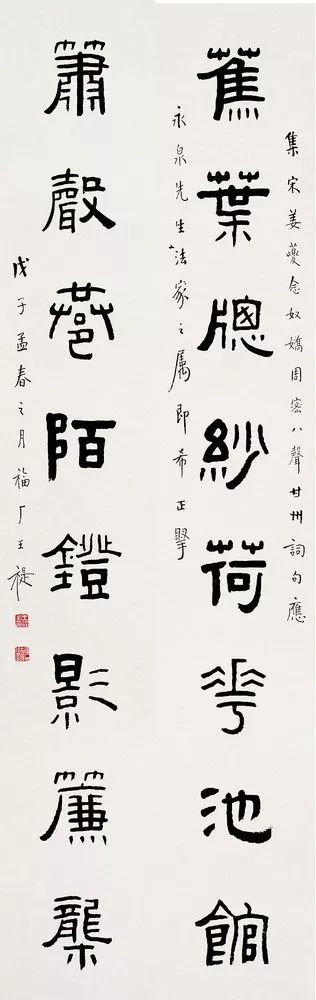 集宋姜夔念奴嬌周密八聲甘州詞句應
蕉葉牕紗荷花池館
永泉先生法家之属即希正
簫聲巷陌鐙影簾櫳
戊子孟春之月福厂王禔